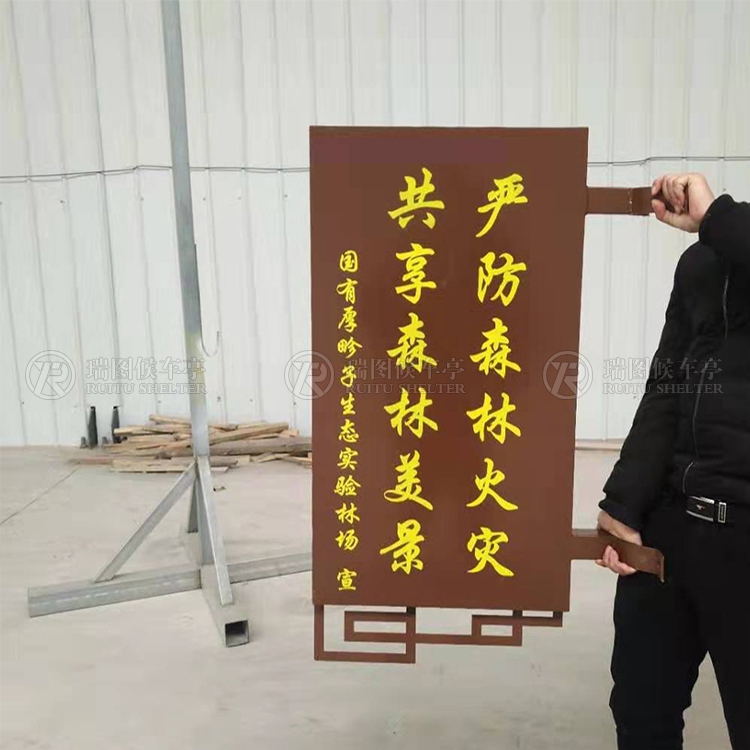 严防森林火灾
共享森林美景
国有厚畛子生态实验林场 宣
瑞图候车亭
RUITU SHELTER
瑞图候车亭
RUITU SHELTER
瑞图候车亭
RUITU SHELTER